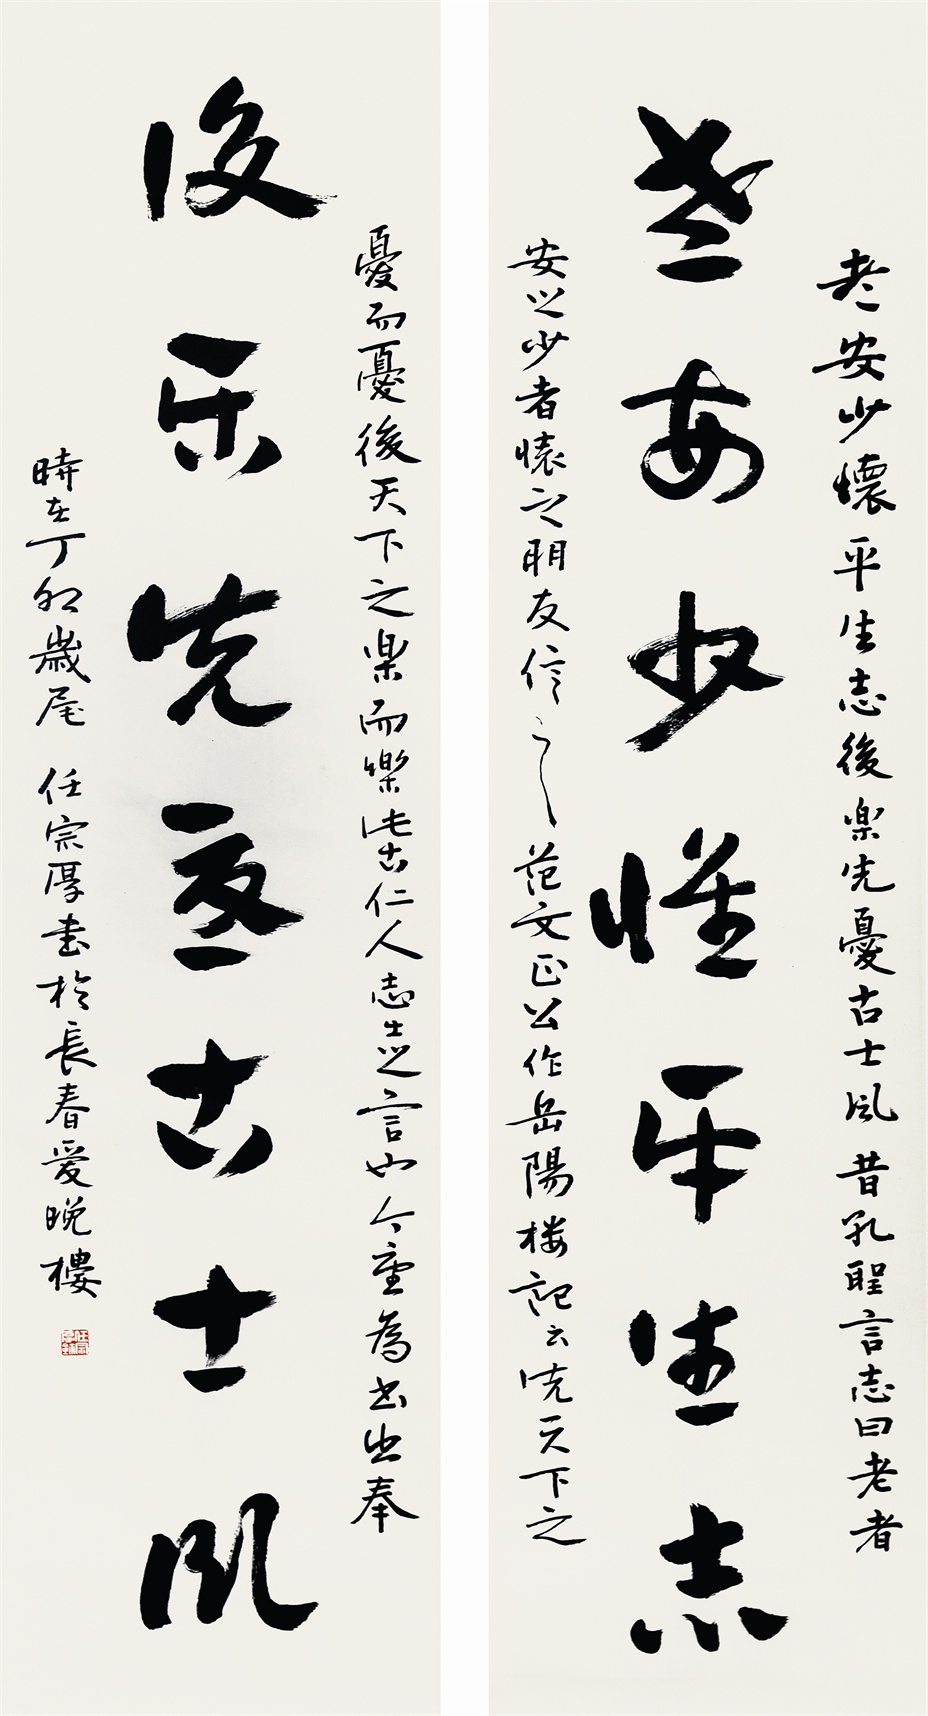 老安少懷平生志後楽先憂古士风昔孔聖言志曰老者
老安少懷平生志
安之少者懷之朋友信之范文正公作岳陽楼記云先天下之
憂而憂後天下之楽而樂此古仁人志士之言也今重為书出奉
後乐先憂古士风
時在丁卯歲尾 任宗厚書於長春爱晚樓